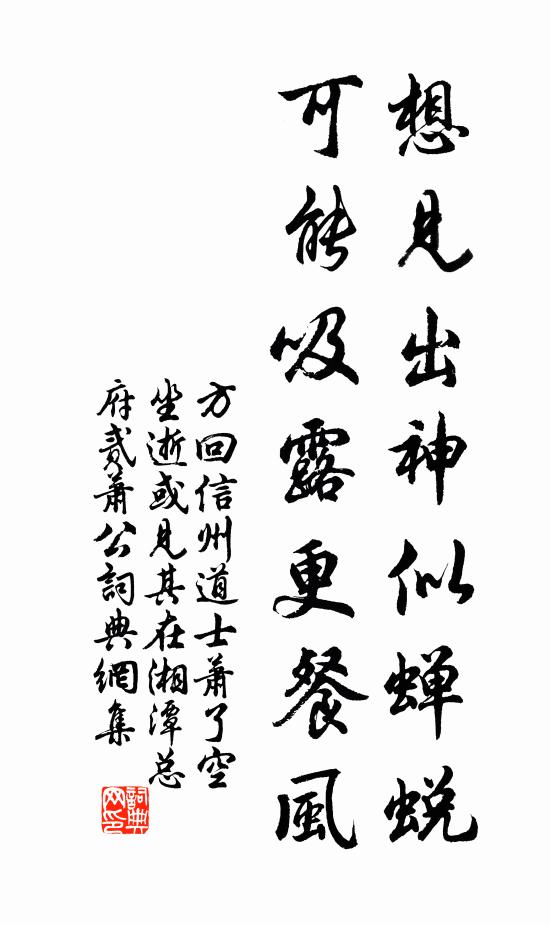 想見出神似蝉蜕
可能吸露更餐風
方回信州道士萧了空
坐逝或見其在湘潭总
府贰萧公詞典網集
詞典網印